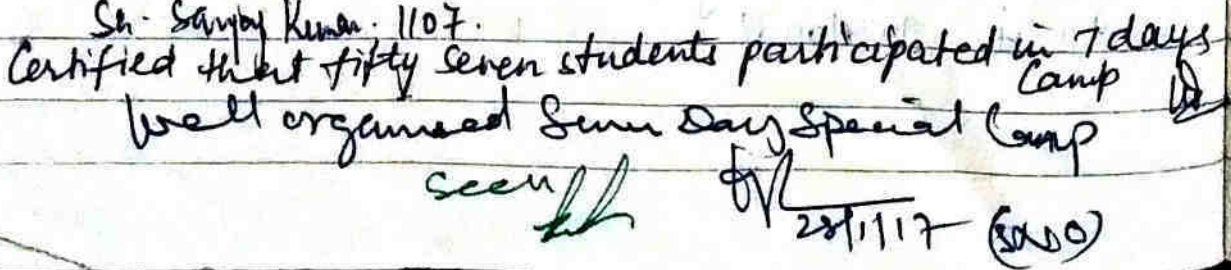 Sh. Sanjay Kumar. 1107.
Certified that fifty seven students participated in 7 days
Camp
Well organised Seven Day Special Camp
seen
28/1/17